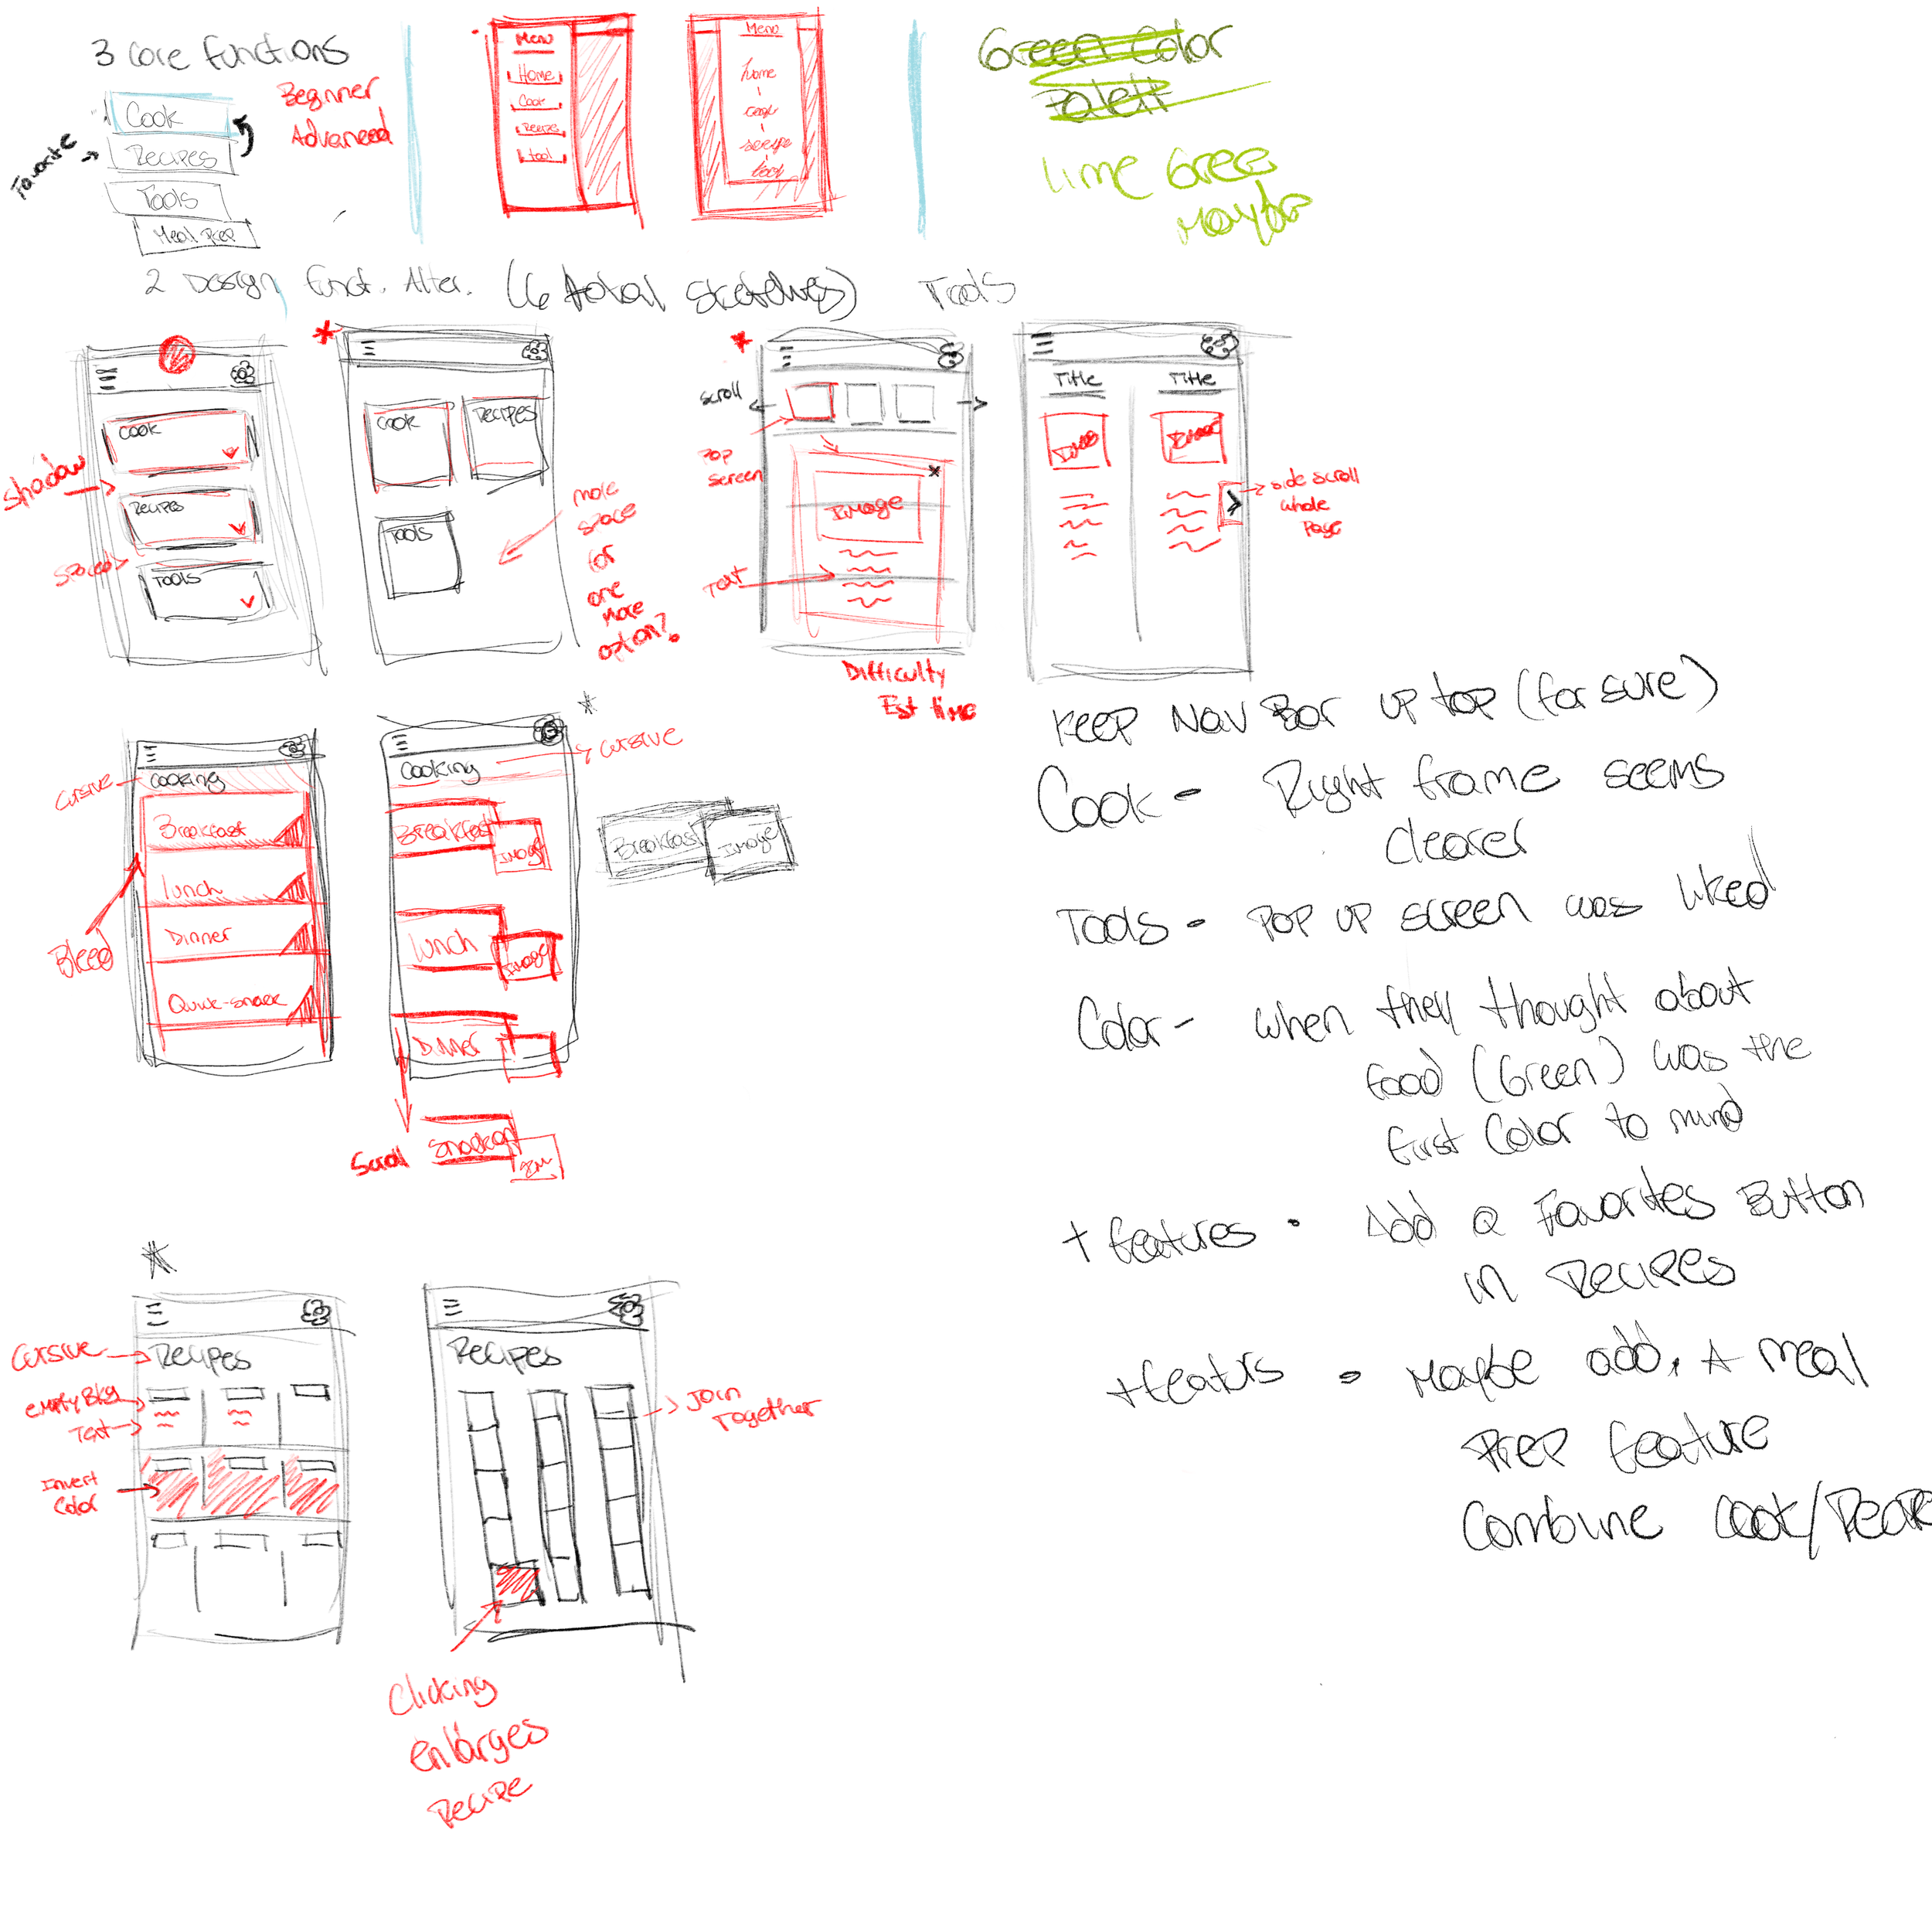 3 Core Functions
Cook
Recipes
Tools
Meal Prep
Favorite
Beginner
Advanced
Menu
Home
Cook
Recipe
tool
Menu
home
cook
recipe
tool
Green Color
Palett
Lime Green
Maybe
2 Design Funct. Alter. (6 total sketches)
Tools
Cook
Recipes
Tools
Shadow
Spaced
Cook
Recipes
Tools
more
space
for
one
more
option?
Scroll
Pop
Screen
Image
Text
Difficulty
Est time
Title
Title
side scroll
whole
Page
Cursive
Cooking
Breakfast
lunch
Dinner
Quick-snack
Bleed
Cooking
Cursive
Breakfast
Image
lunch
Image
Dinner
Scroll
Breakfast
Image
Keep Nav Bar up top (for sure)
Cook - Right frame seems
clearer
Tools - Pop up screen was liked
Color - when they thought about
food (Green) was the
first Color to mind
+ features - Add a Favorites Button
in Recipes
+ featurs - Maybe add, A meal
Prep feature
Combine Cook/
Cursive
Recipes
empty Bkg
Text
Invert
Color
Recipes
Join
Together
Clicking
enlarges
Recipe